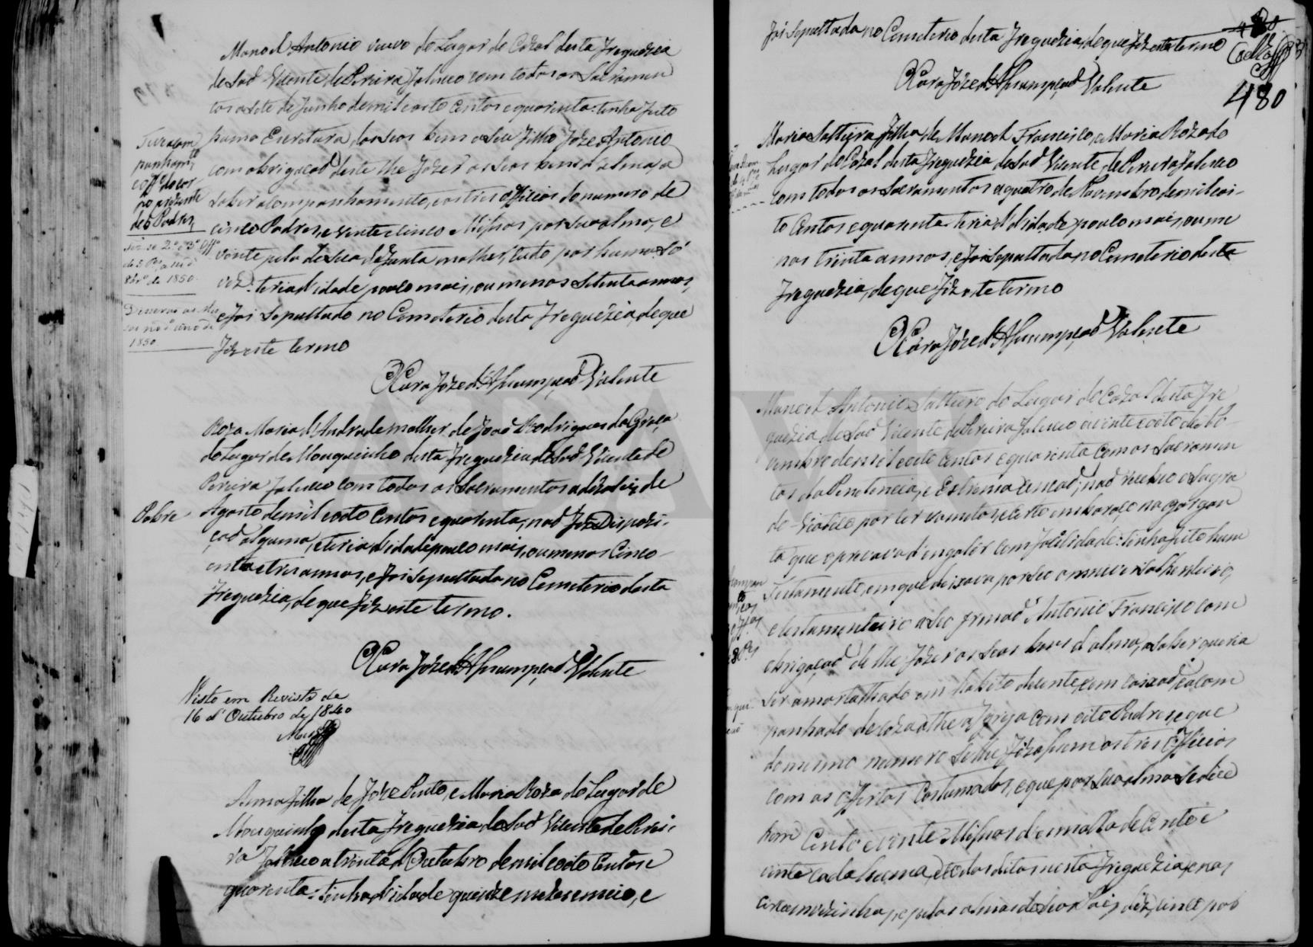 Manoel Antonio viuvo do Lugar de Cazal desta Freguezia
de Saõ Vicente de Pereira faleceo com todos os Sacramen
tos a sete de Junho de mil e oito Centos e quarenta: tinha feito
huma Escritura, dos seos bens a seu filho Joze Antonio
com obrigaçaõ deste lhe fazer os seos bens d'alma, a
saber acompanhamento, com tres officios do numero de
cinco Padres, e vinte e cinco Missas por sua alma, e
vinte pela de sua defunta molher, tudo por huma só
vez: teria de idade pouco mais, ou menos setenta annos,
e foi sepultado no Cemeterio desta Freguezia, de que
fiz este termo
O Cura Joze d'Assumpçaõ Valente
Roza Maria d'Andrade molher de Joaõ Rodrigues da Graça
do Lugar de Mouquinho desta Freguezia de Saõ Vicente de
Pereira faleceo com todos os Sacramentos a dezaseis de
Agosto de mil e oito Centos e quarenta, naõ fez Disposi-
çaõ alguma, e teria de idade pouco mais, ou menos Cinco
enta e tres annos, e foi sepultada no Cemeterio desta
Freguezia, de que fiz este termo.
Pobre
O Cura Joze d'Assumpçaõ Valente
Visto em Revista de
16 d'Outubro de 1840
Anna filha de Joze Pinto, e Maria Roza do Lugar de
Mouquinho desta Freguezia de Saõ Vicente de Perei-
ra faleceo a trinta d'Outubro de mil e oito Centos e
quarenta: tinha de idade quinze mezes e meio, e
foi sepultada no Cemeterio desta Freguezia, de que fiz este termo
480
O Cura Joze d'Assumpçaõ Valente
Maria Solteira filha de Manoel Francisco, e Maria Roza do
Lugar de Cazal desta Freguezia de Saõ Vicente de Pereira faleceo
com todos os Sacramentos a quatro de Novembro de mil e oi-
to Centos e quarenta: teria de idade pouco mais, ou me
nos trinta annos, e foi sepultada no Cemeterio desta
Freguezia, de que fiz este termo
O Cura Joze d'Assumpçaõ Valente
Manoel Antonio Solteiro do Lugar de Cazal desta Fre
guezia de Saõ Vicente de Pereira faleceo a vinte e oito de No-
vembro de mil e oito Centos e quarenta com os Sacramen
tos da Penitencia, e Extrema Unçaõ; naõ recebeo o Sagra
do Viatico por ter vomitos, e certo embaraço na gargan
ta que o privava d'engolir com facilidade: tinha feito hum
Testamento, em que deixava por seo universal herdeiro,
e testamenteiro a seo Irmaõ Antonio Francisco com
obrigaçaõ de lhe fazer os seos bens d'alma, a saber queria
ser amortalhado em habito decente, em caixaõ, e acom
panhado de caza athe a Igreja com oito Padres, e que
do mesmo numero se lhe fizessem os tres Officios
com as Offertas Costumadas, e que por sua alma se dice
ssem Cento e vinte Missas d'esmola de cento e
vinte cada huma, e todas ditas nesta Freguezia, e nas
circumvizinhas, e pelas almas de seos Pais dez, tudo por